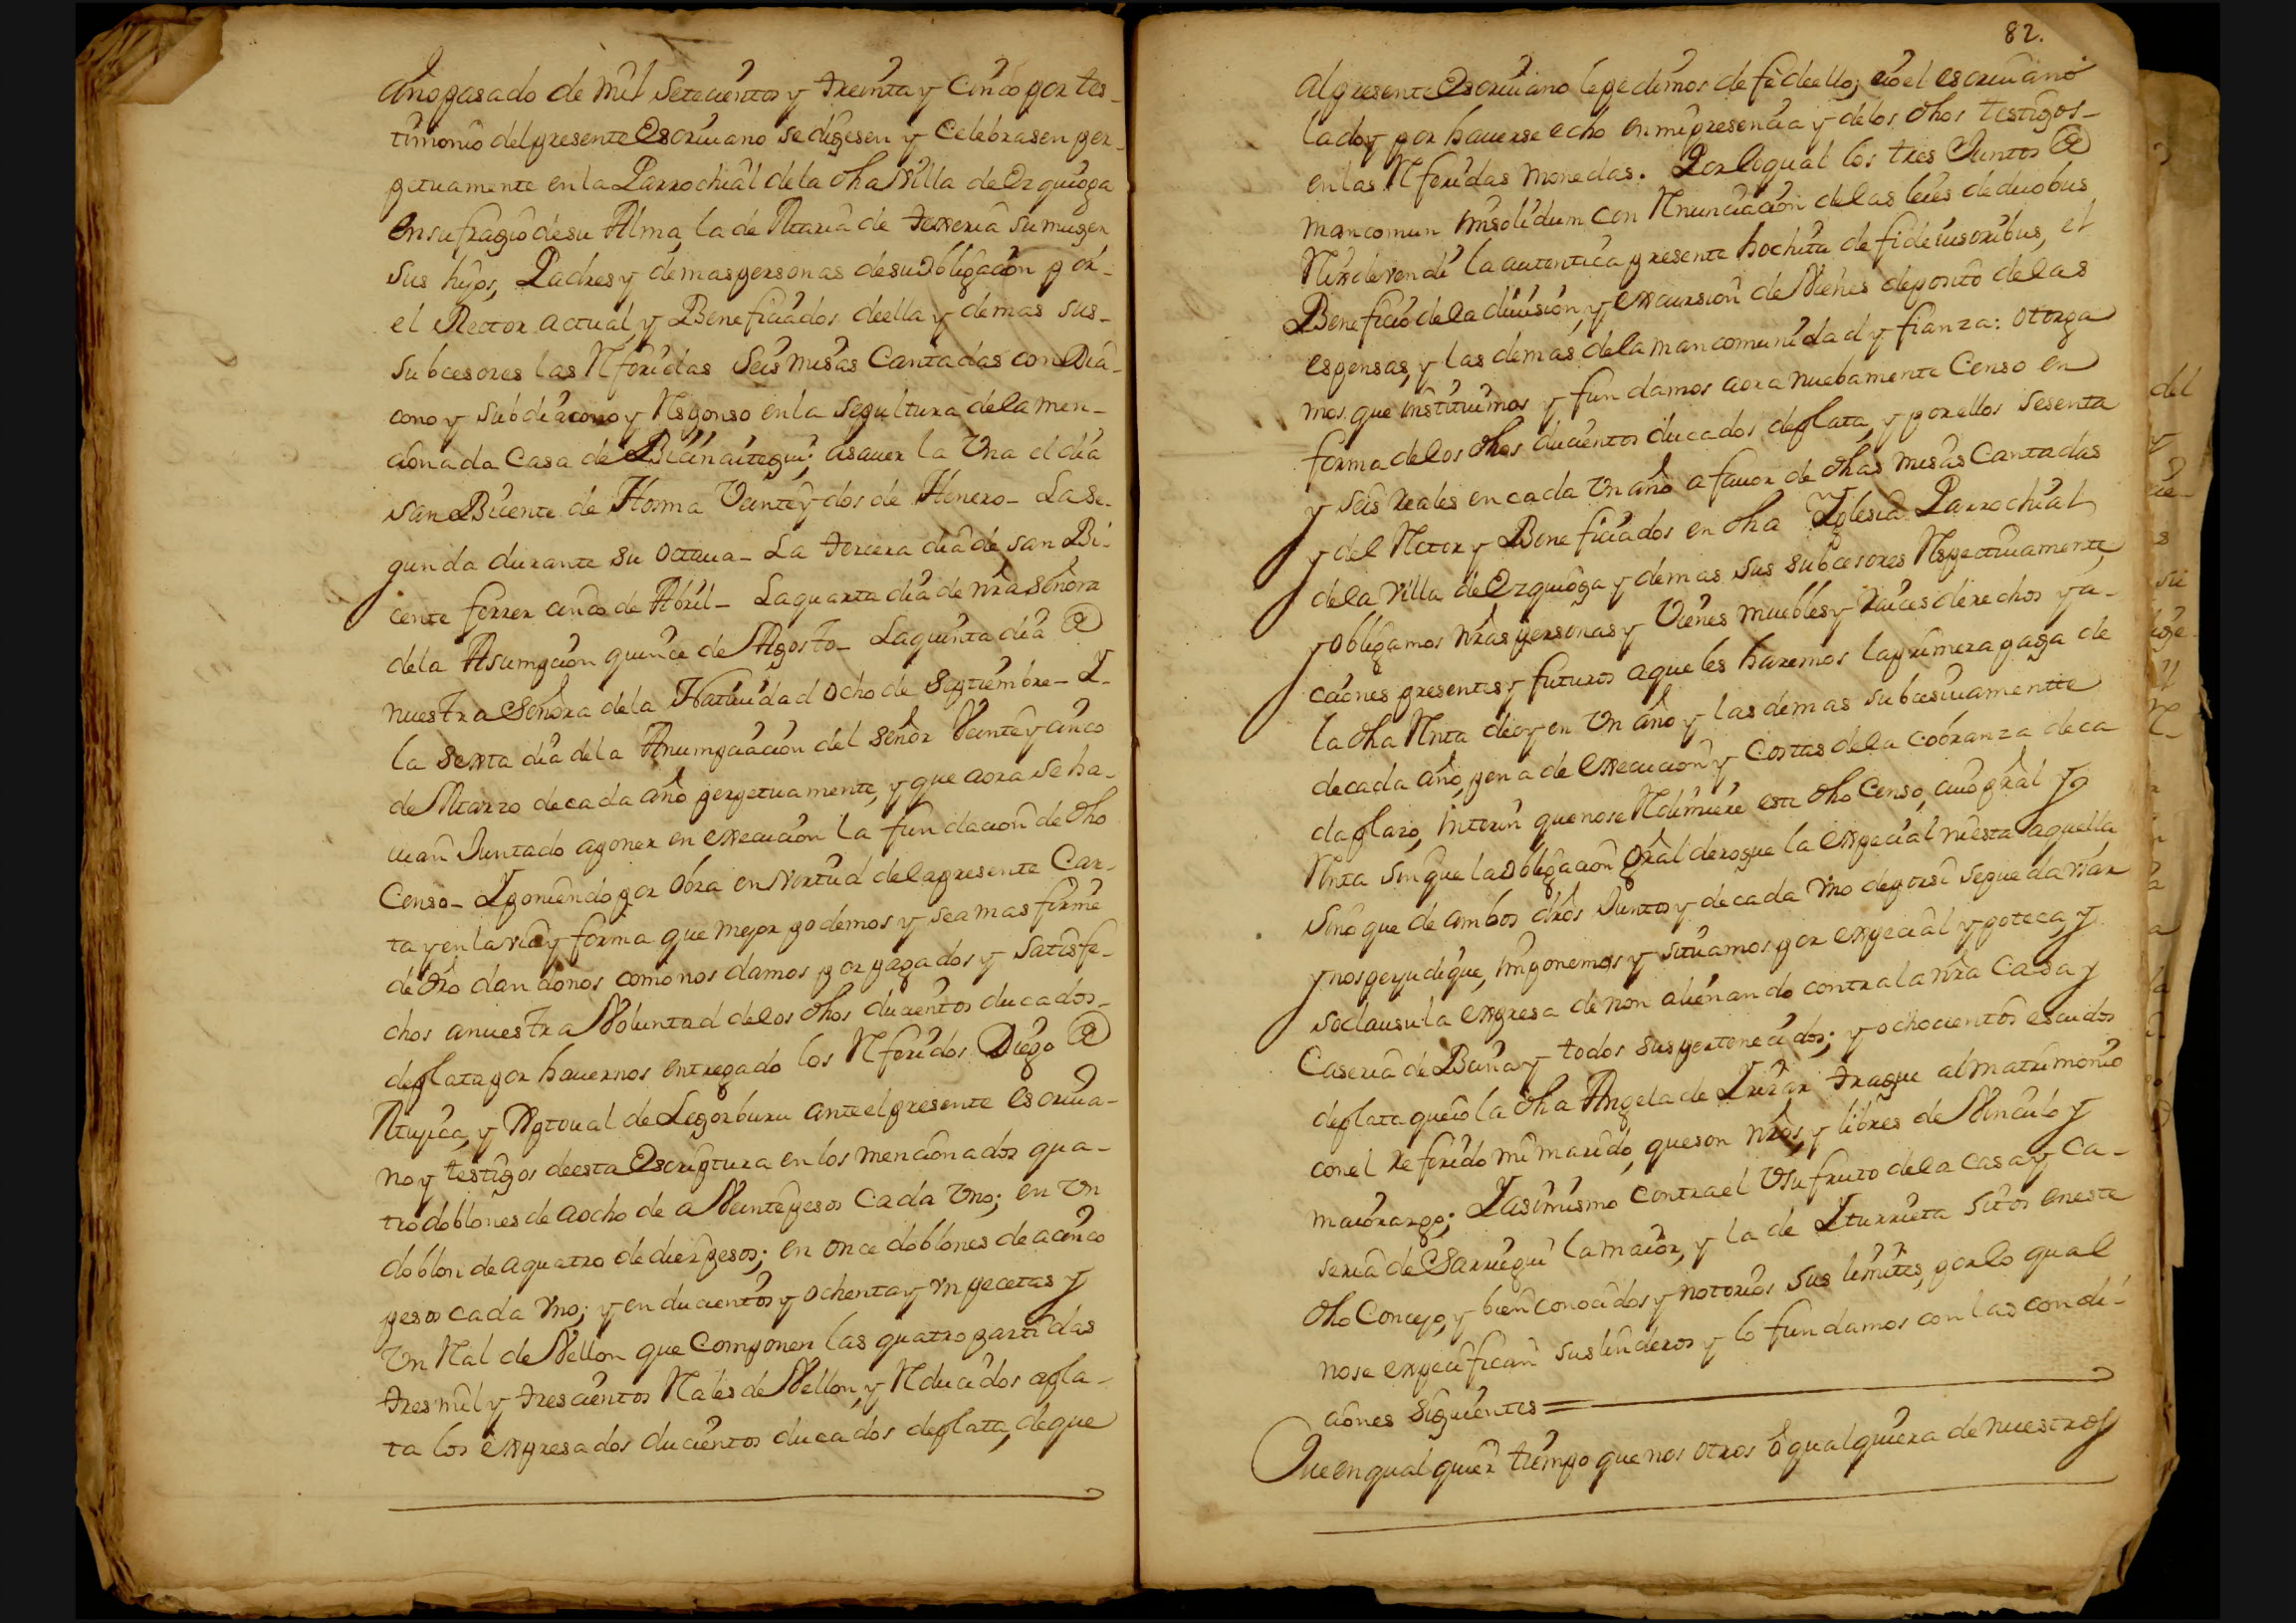 año pasado de mil setecientos y treinta y cinco por tes-
timonio del presente Escriuano se digesen y Celebrasen per-
petuamente en la Parrochial de la dha Villa de Ezquioga
en sufragio de su Alma, la de Maria de Terreria su muger
sus hijos, Padres y demas personas de su obligacion por-
el Rector actual, y Beneficiados de ella y demas sus-
subcesores las Rferidas seis misas Cantadas con Dia-
cono y subdiacono y Rsponso en la sepultura de la men-
cionada Casa de asauer la Vna el dia
san Bicente de Horma Veinte y dos de Henero- La se-
gunda durante su octaua- La tercera dia de san Bi-
cente ferrer cinco de Abril- La quarta dia de nra señora
de la Asumpcion quince de Agosto- La quinta dia @
nuestra Señora de la Natiuidad ocho de septiembre- Y-
la sexta dia de la Anumpciacion del señor Veinte y cinco
de Marzo de cada año perpetuamente, y que aora se ha-
uian Juntado a poner en execucion la fundacion de dho
Censo- Y poniendo por obra en virtud de la presente Car-
ta y en la via y forma que mejor podemos y sea mas firme
de dro dandonos como nos damos por pagados y satisfe-
chos a nuestra Voluntad de los dhos ducientos ducados-
de plata por hauernos entregado los Rferidos Diego @
Mujica, y de Legorburu ante el presente escriua-
no y testigos de esta Escriptura en los mencionados qua-
tro doblones de a ocho de a Veinte pesos Cada Vno; en Vn
doblon de a quatro de diez pesos; en once doblones de a cinco
pesos cada Vno; y en ducientos y ochenta y vn pecetas y
Vn Ral de Vellon que Componen las quatro partidas
tres mil y trescientos Rales de Vellon, y Rducidos a pla-
ta los expresados ducientos ducados de plata, de que
82.
Al presente Escriuano le pedimos de fe de ello; e io el escriuano
la doy por hauerse echo en mi presencia y de los dhos testigos-
en las Rferidas monedas. Por lo qual los tres Juntos @
mancomun insolidum con Rnunciacion de las leies de duobus
la autentica presente hochita de fideiusoribus, et
Beneficio de la diuision, y excursion de Vienes deposito de las
espensas, y las demas de la mancomunidad y fianza: otorga
mos que instituimos y fundamos aora nuebamente Censo en
forma de los dhos ducientos ducados de plata, y por ellos sesenta
y seis reales en cada Vn año a fauor de dhas misas Cantadas
y del Rctor y Beneficiados en dha Yglesia Parrochial
de la Villa de Ezquioga y demas sus subcesores Rspectiuamente,
y obligamos nras personas y Vienes muebles y raices derechos y a-
ciones presentes y futuros a que les haremos la primera paga de
la dha Rnta de oy en Vn año y las demas subcesiuamente
de cada año, pena de execucion y Costas de la cobranza de ca
da plazo, interin que no se Rdimiere este dho Censo, cuio pral y
Rnta sin que la obligacion gral derogue la expecial ni esta aquella
sino que de ambos dros Juntos y de cada Vno de por si se pueda vsar
y nos perjudique, imponemos y situamos por expecial ypoteca, y
so clausula expresa de non alienando contra la nra Casa y
Caseria de y todos sus pertenecidos; y ochocientos escudos
de plata que io la dha Angela de Yrizar trague al matrimonio
con el referido mi marido, que son nros, y libres de Vinculo y
maiorazgo; Y asimismo contra el Vsufruto de la casa y Ca-
seria de Sarriegui la maior, y la de Yturrieta sitos en este
dho Concejo, y bien conocidos y notorios sus limites, por lo qual
no se expecifican sus linderos y lo fundamos con las condi-
ciones siguientes =
Que en qualquier tiempo que nosotros ò qualquiera de nuestros